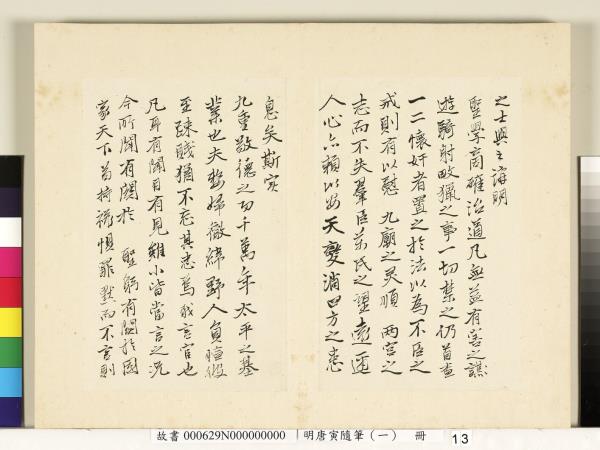 之士與之講明
聖學商確治道凡無益有害之謀
遊騎射畋獵之事一切禁之仍首查
一二懷奸者置之於法以為不臣之
戒則有以慰 九廟之灵順 兩宮之
志而不失羣臣萬民之望遠迩
人心亦頼以安天變消四方之患
息矣斯實
九重敬德之功千萬年太平之基
業也夫嫠婦徹緯野人負暄微
至疎賤猶不忘其忠焉我言官也
凡耳有聞目有見雖小皆當言之況
今所聞有関於 聖躬有関於國
家天下苟持祿惧罪默而不言則
故書 000629N000000000 明唐寅隨筆(一) 冊 13